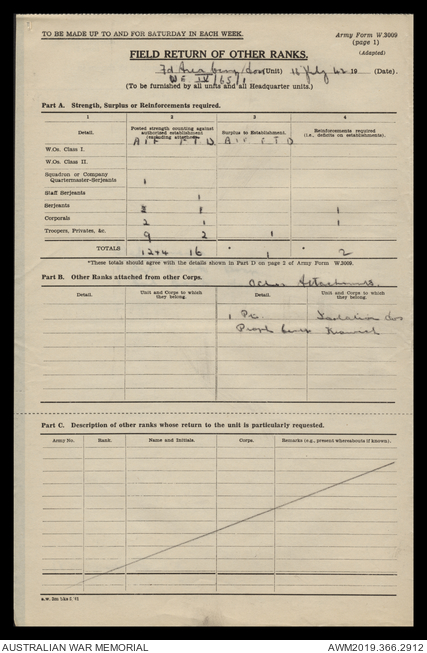 TO BE MADE UP TO AND FOR SATURDAY IN EACH WEEK.
Army Form W.3009
(page 1)
(Adapted)
FIELD RETURN OF OTHER RANKS.
(Unit) 14 July 42 19 (Date).
WE IV/65/1
(To be furnished by all units and all Headquarter units.)
Part A. Strength, Surplus or Reinforcements required.
1 2 3 4
Detail. Posted strength counting against authorized establishment (excluding attached). Surplus to Establishment. Reinforcements required (i.e., deficits on establishment).
AIF PTD AIF PTD
W.Os. Class I.
W.Os. Class II.
Squadron or Company Quartermaster-Serjeants 1
Staff Serjeants 1
Serjeants 1 1
Corporals 2 1 1
Troopers, Privates, &c. 9 2 1
TOTALS 16 * 1 * 2
*These totals should agree with the details shown in Part D on page 2 of Army Form W.3009.
Part B. Other Ranks attached from other Corps.
Attachments.
Detail. Unit and Corps to which they belong. Detail. Unit and Corps to which they belong.
1 Pte.
Part C. Description of other ranks whose return to the unit is particularly requested.
Army No. Rank. Name and Initials. Corps. Remarks (e.g., present whereabouts if known).
AUSTRALIAN WAR MEMORIAL
AWM2019.366.2912